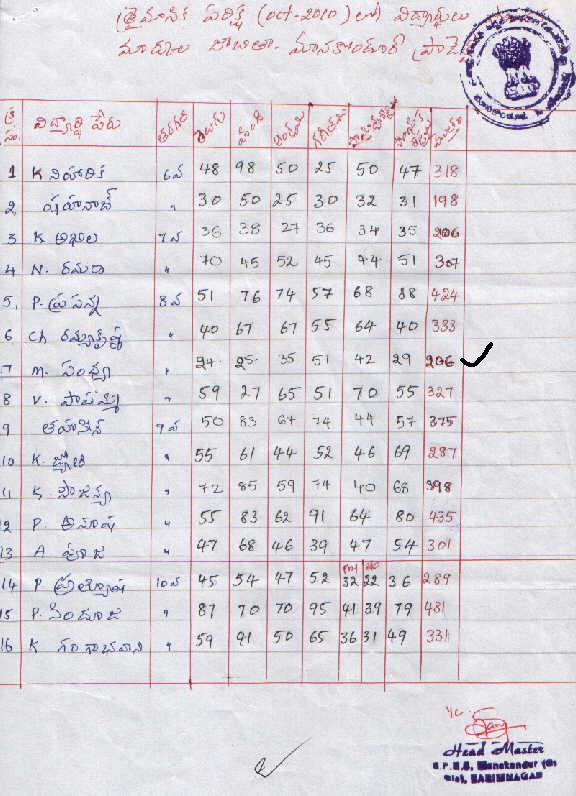 త్రైమాసిక పరీక్ష (oct-2010) లో విద్యార్థుల
మార్కుల జాబితా - మానకొండూర్
క్ర సం. విద్యార్థి పేరు తరగతి తెలుగు హింది ఇంగ్లీషు గణితము సాంఘిక
1 K నిహారిక 6వ 48 98 50 25 50 47 318
2 షహనాజ్ " 30 50 25 30 32 31 198
3 K అఖిల 7వ 36 38 27 36 34 35 206
4 N. రమాదే " 70 45 52 45 44 51 307
5. P. ప్రసన్న 8వ 51 76 74 57 68 88 424
6 Ch " 40 67 67 55 64 40 333
7 M. సంధ్య " 24 25 35 51 42 29 206
8 V. పాపమ్మ " 59 27 65 51 70 55 327
9 తహసీన్ 9వ 50 83 67 74 44 57 375
10 K. జ్యోతి " 55 61 44 52 46 69 287
11 K. సౌజన్య " 72 85 59 74 40 68 398
12 P. అనూష " 55 83 62 91 64 80 435
13 A పూజ " 47 68 46 39 47 54 301
14 P ప్రత్యూష 10వ 45 54 47 52 32 22 36 289
15 P. సింధూజ " 87 70 70 95 41 39 79 481
16 K గంగాభవాని " 59 91 50 65 36 31 49 331
Head Master